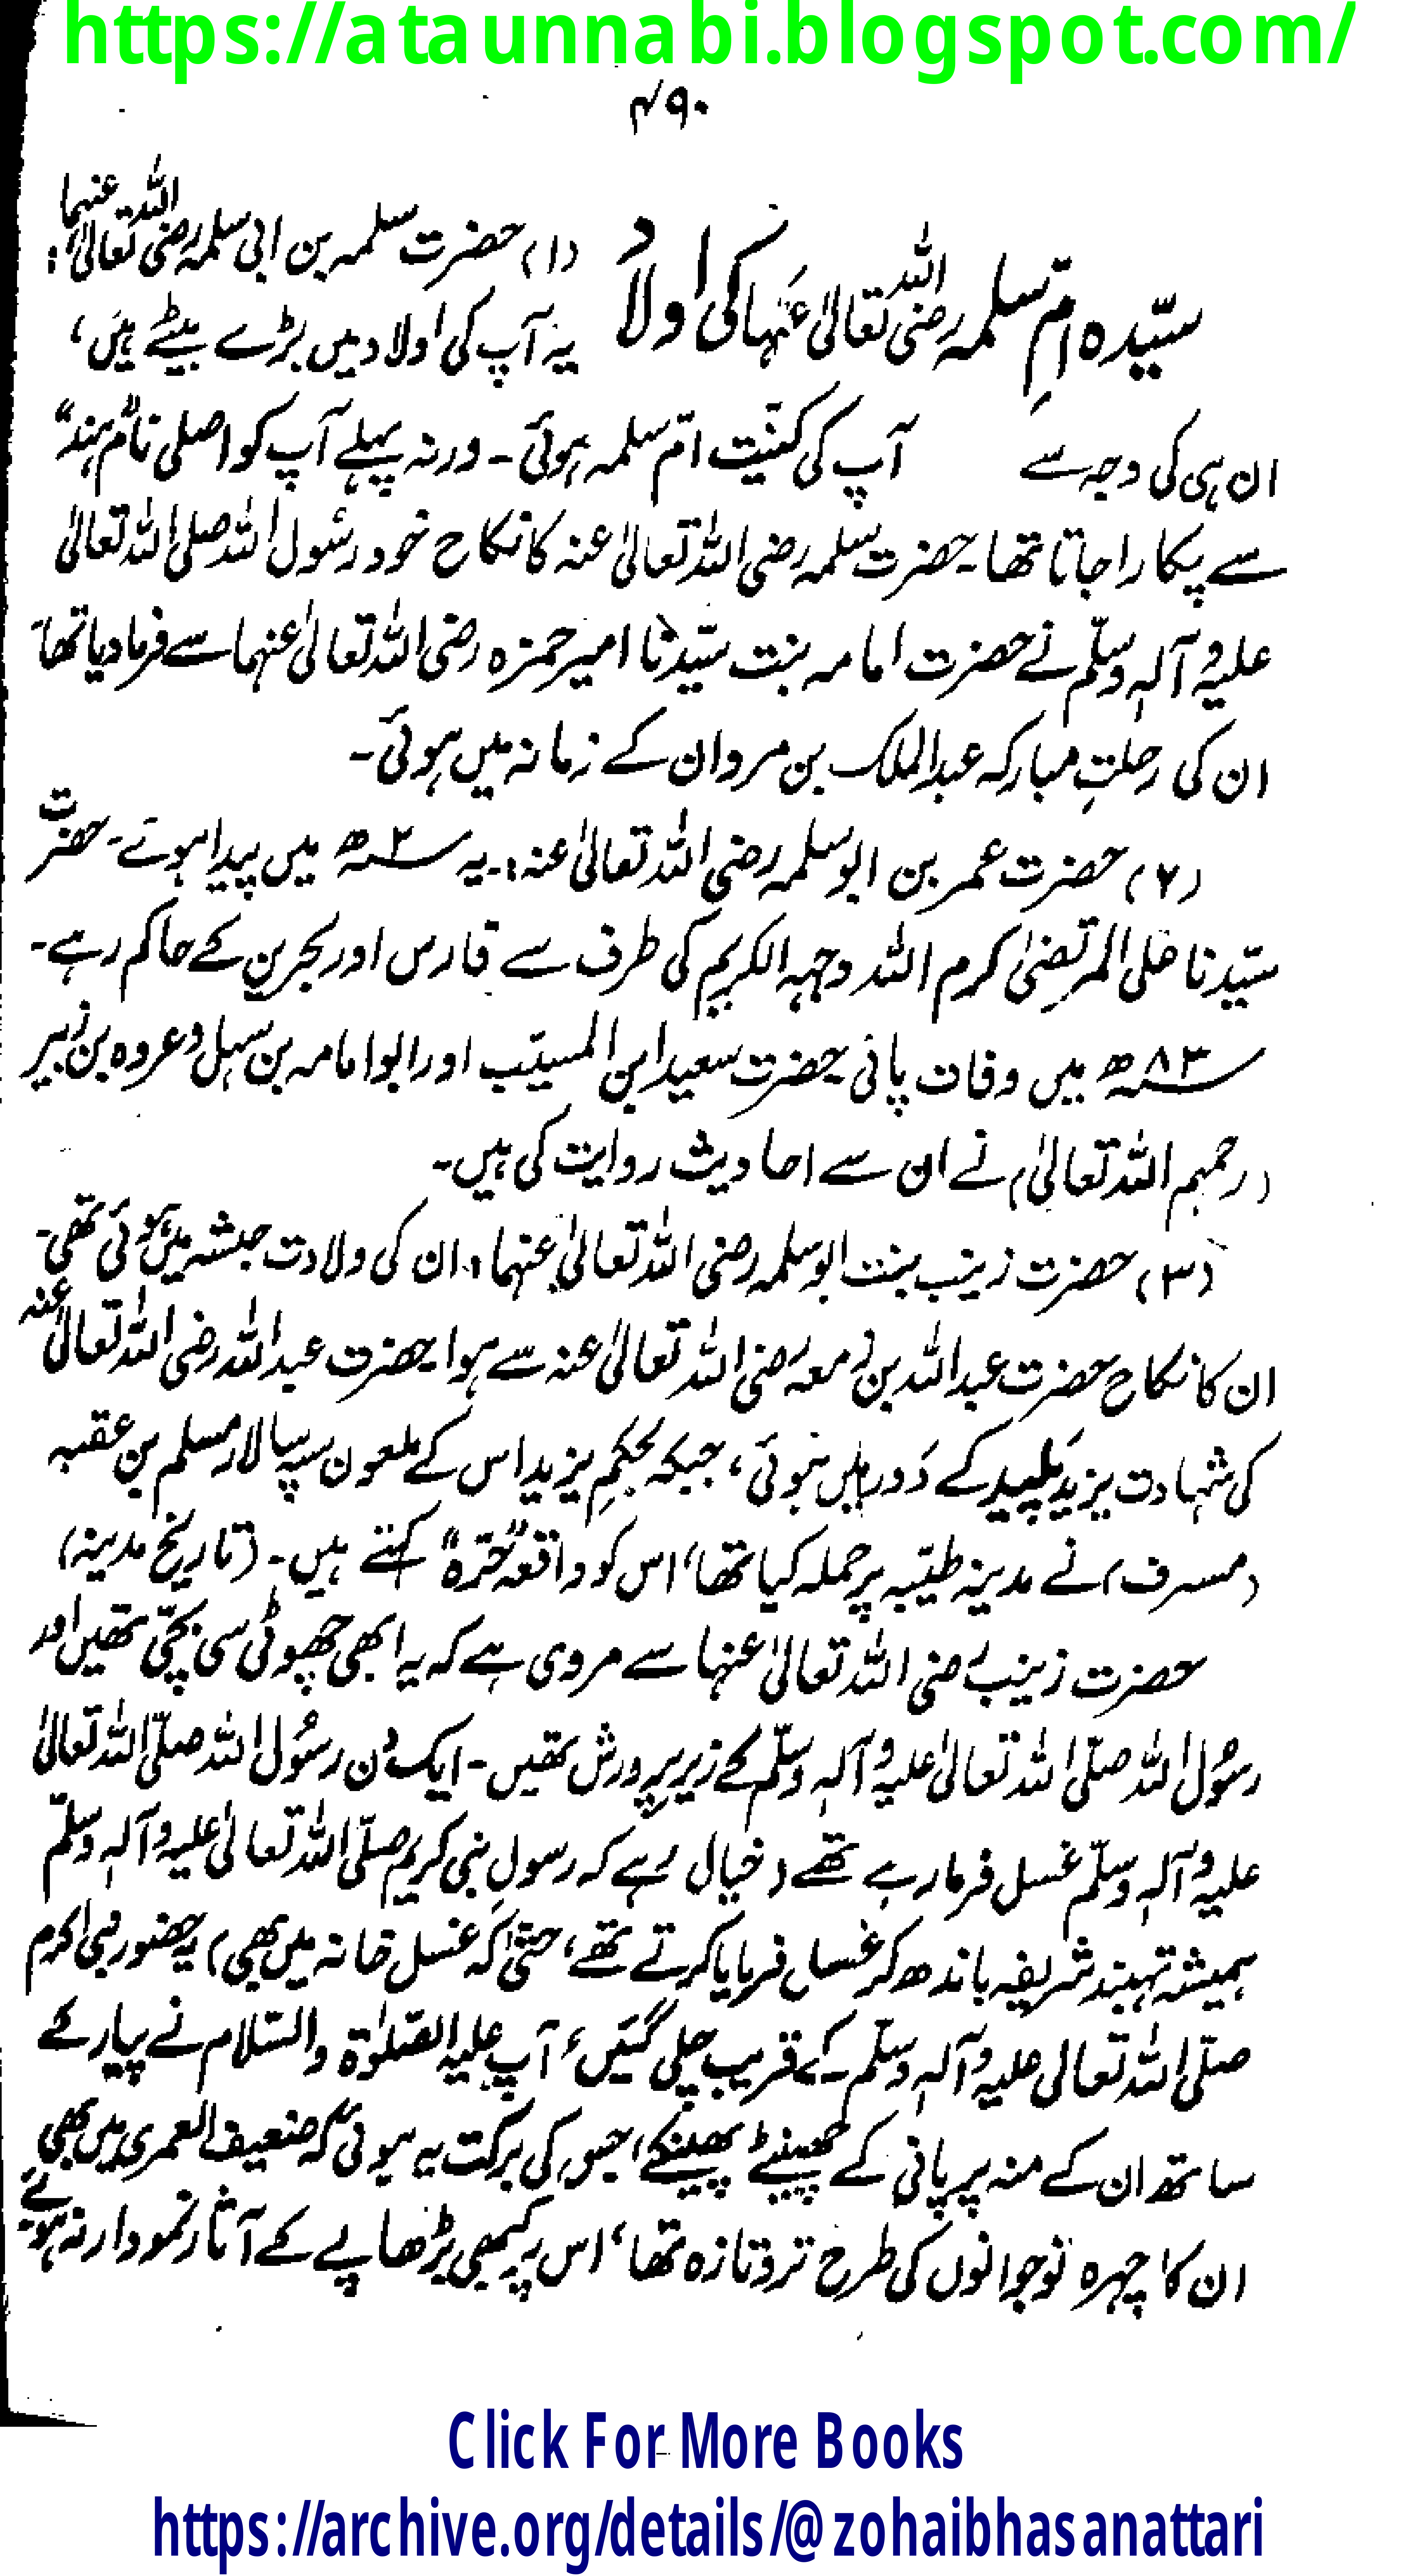 https://ataunnabi.blogspot.com/
۴۹۰
سیّدہ امِّ سلمہ رضی اللہ تعالیٰ عنہا کی اولاد
(۱) حضرت سلمہ بن ابی سلمہ رضی اللہ تعالیٰ عنہما:
یہ آپ کی اولاد میں بڑے بیٹے ہیں،
ان ہی کی وجہ سے آپ کی کنیّت امّ سلمہ ہوئی۔ ورنہ پہلے آپ کو اصلی نام "ہند"
سے پکارا جاتا تھا۔ حضرت سلمہ رضی اللہ تعالیٰ عنہ کا نکاح خود رسُول اللہ صلی اللہ تعالیٰ
علیہ وآلہٖ وسلّم نے حضرت امامہ بنت سیّدنا امیر حمزہ رضی اللہ تعالیٰ عنہما سے فرما دیا تھا۔
ان کی رحلتِ مبارکہ عبدالملک بن مروان کے زمانہ میں ہوئی۔
(۲) حضرت عمر بن ابو سلمہ رضی اللہ تعالیٰ عنہ:۔ یہ ۲ھ میں پیدا ہوئے۔ حضرت
سیّدنا علی المرتضیٰ کرم اللہ وجہہ الکریم کی طرف سے فارس اور بحرین کے حاکم رہے۔
۸۳ھ میں وفات پائی۔ حضرت سعید ابن المسیّب اور ابو امامہ بن سہل و عروہ بن زبیر
(رحمہم اللہ تعالیٰ) نے ان سے احادیث روایت کی ہیں۔
(۳) حضرت زینب بنت ابو سلمہ رضی اللہ تعالیٰ عنہما: ان کی ولادت حبشہ میں ہوئی تھی۔
ان کا نکاح حضرت عبداللہ بن زمعہ رضی اللہ تعالیٰ عنہ سے ہوا۔ حضرت عبداللہ رضی اللہ تعالیٰ عنہ
کی شہادت یزید پلید کے دَور میں ہوئی، جبکہ بحکمِ یزید اس کے ملعون سپہ سالار مسلم بن عقبہ
(مسرف) نے مدینہ طیّبہ پر حملہ کیا تھا، اس کو واقعہ "حرّہ" کہتے ہیں۔ (تاریخ مدینہ)
حضرت زینب رضی اللہ تعالیٰ عنہا سے مروی ہے کہ یہ ابھی چھوٹی سی بچّی تھیں اور
رسُول اللہ صلّی اللہ تعالیٰ علیہ وآلہٖ وسلّم کے زیرِ پرورش تھیں۔ ایک دن رسُول اللہ صلّی اللہ تعالیٰ
علیہ وآلہٖ وسلّم غسل فرما رہے تھے (خیال رہے کہ رسولِ نبی کریم صلّی اللہ تعالیٰ علیہ وآلہٖ وسلّم
ہمیشہ تہبند شریف باندھ کر غسل فرمایا کرتے تھے، حتیٰ کہ غسل خانہ میں بھی) یہ حضور نبی اکرم
صلّی اللہ تعالیٰ علیہ وآلہٖ وسلّم کے قریب چلی گئیں، آپ علیہ الصّلوٰۃ والسّلام نے پیار کے
ساتھ ان کے منہ پر پانی کے چھینٹے پھینکے، جس کی برکت یہ ہوئی کہ ضعیف العمری میں بھی
ان کا چہرہ نوجوانوں کی طرح تر و تازہ تھا، اس پر کبھی بڑھاپے کے آثار نمودار نہ ہوئے۔
Click For More Books
https://archive.org/details/@zohaibhasanattari